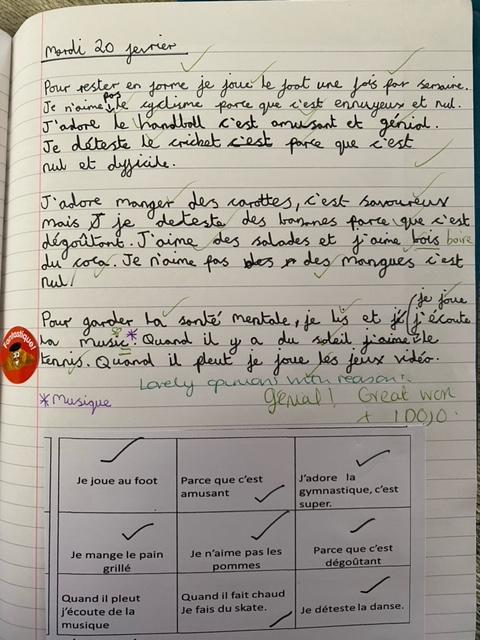 Mardi 20 fevrier
Pour rester en forme je joue le foot une fois par semaine.
Je n'aime pas le cyclisme parce que c'est ennuyeux et nul.
J'adore le handball c'est amusant et génial.
Je déteste le cricket c'est parce que c'est
nul et dificile.
J'adore manger des carottes, c'est savoureux
mais je deteste des bananes parce que c'est
dégoûtant. J'aime des salades et j'aime bois boire
du coca. Je n'aime pas des mangues c'est
nul!
je joue
Pour garder la santé mentale, je lis et je j'écoute
la music. * Quand il y a du soleil j'aime le
tennis. Quand il pleut je joue les jeux vidéo.
Fantastique!
Lovely opinions with reasons.
*Musique
génial! Great work
+ 100
Je joue au foot
Parce que c'est
amusant
J'adore la
gymnastique, c'est
super.
Je mange le pain
grillé
Je n'aime pas les
pommes
Parce que c'est
dégoûtant
Quand il pleut
j'écoute de la
musique
Quand il fait chaud
Je fais du skate.
Je déteste la danse.